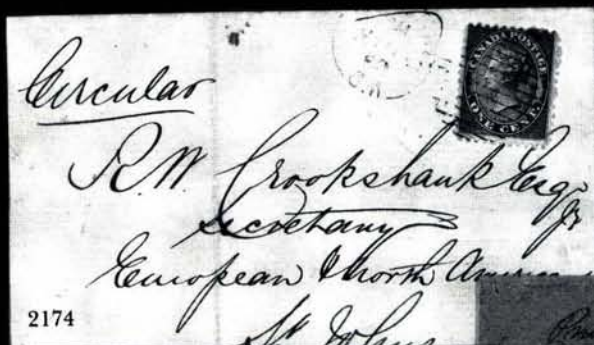 Circular
CANADA POSTAGE
ONE CENT.
R.W. Crookshank Esqr
Jr
Secretary
European & North
St Johns
2174